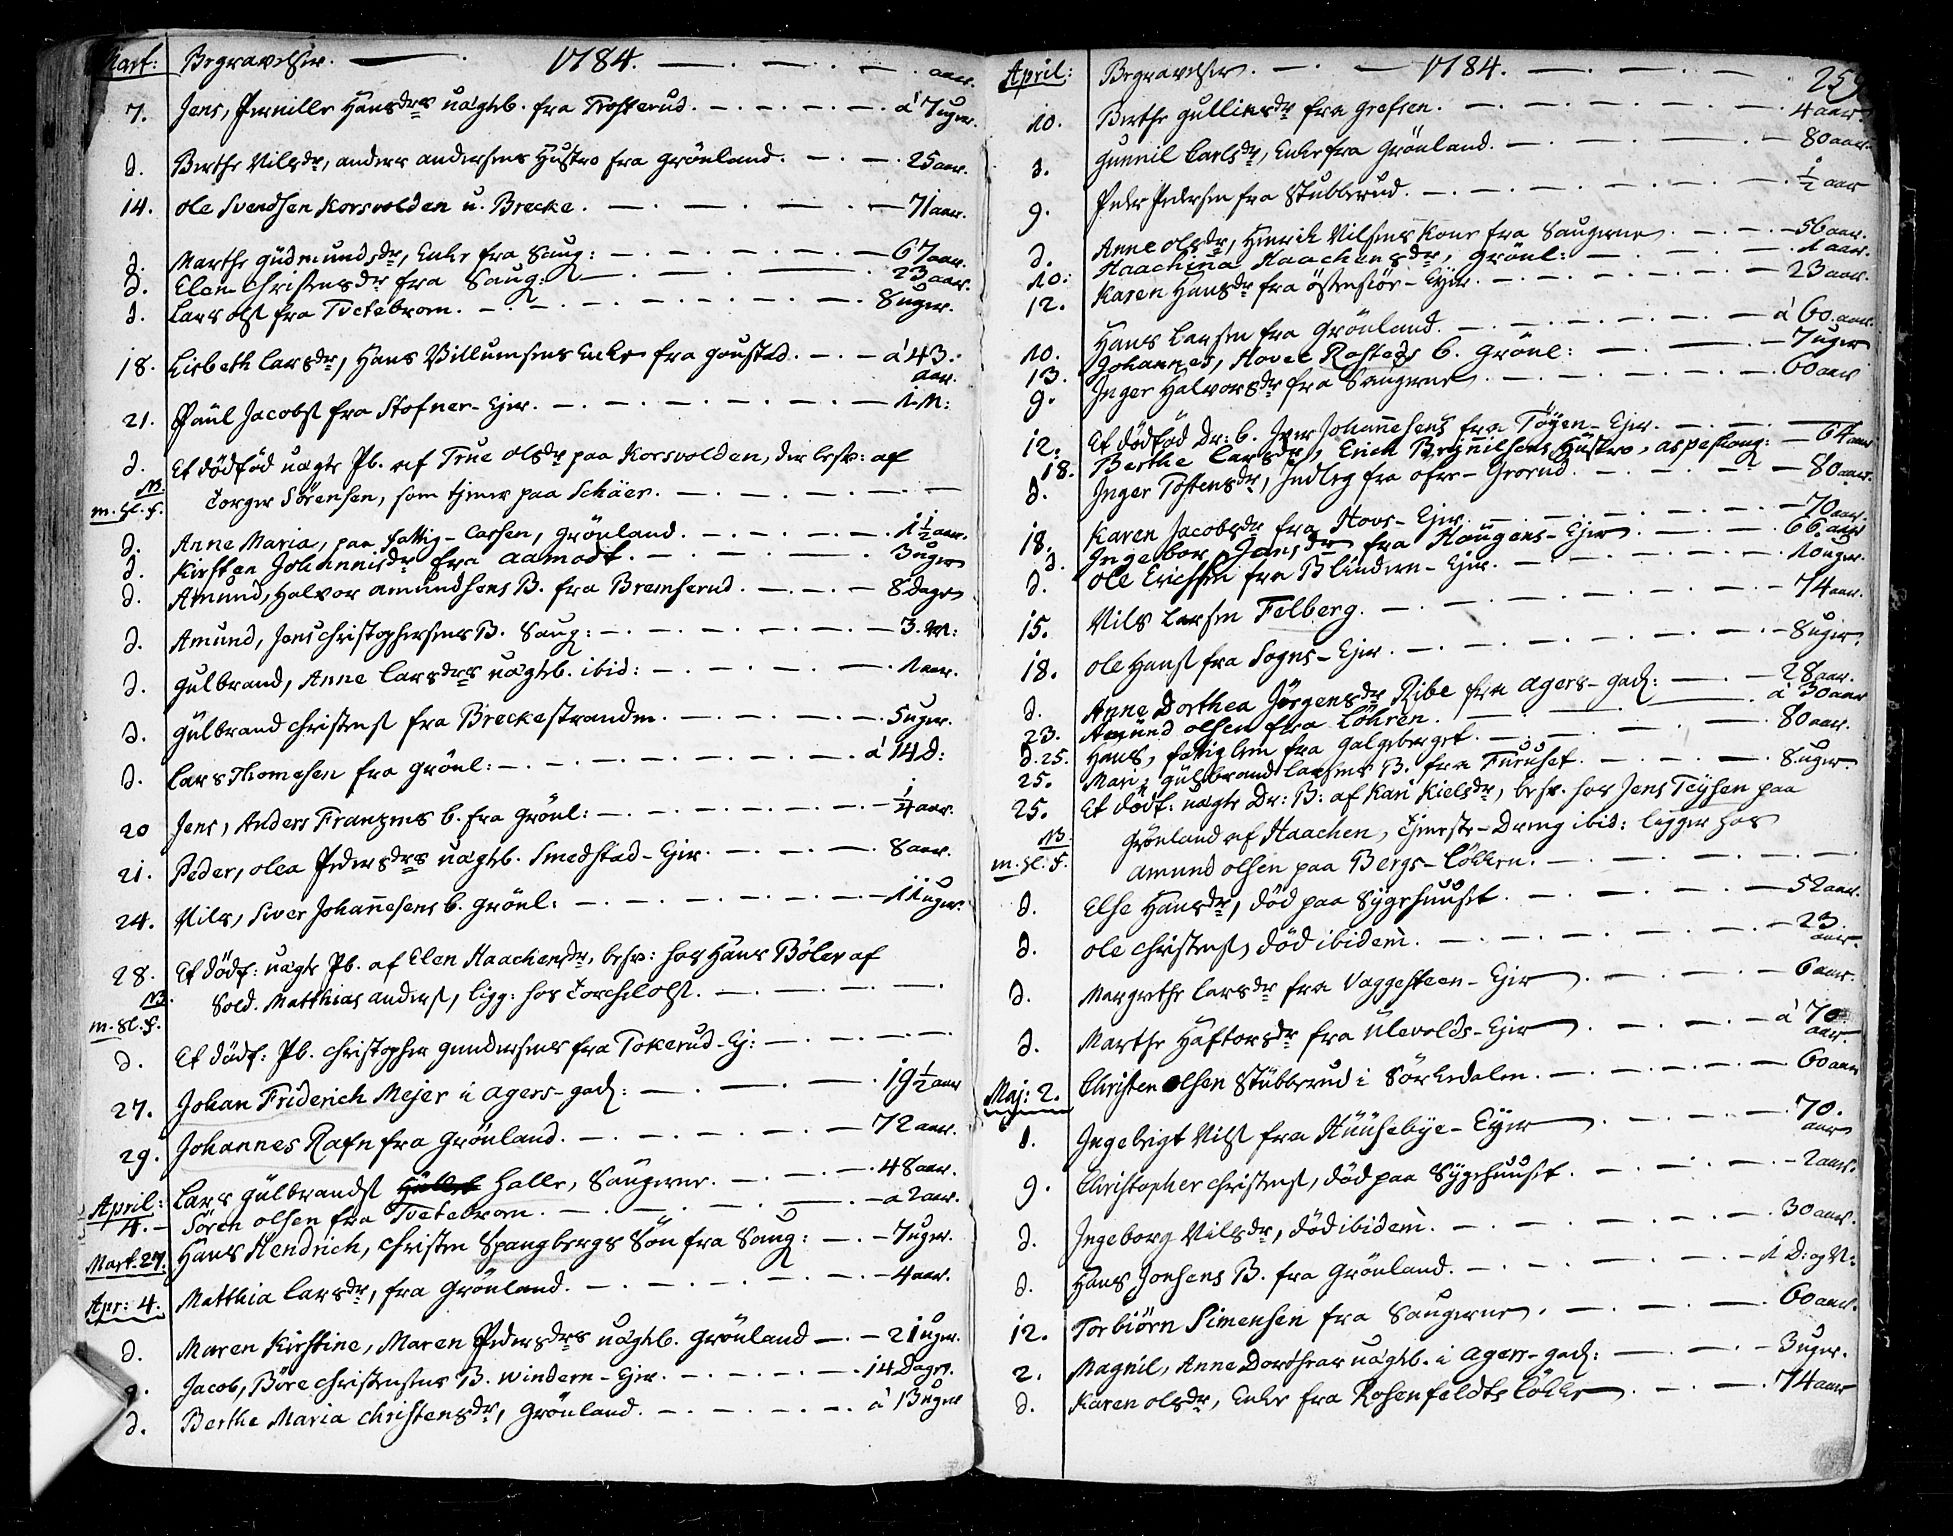 Mart: Begravelser. 1784. aar.
7. Jens, Pernille Hansdrs uägteb. fra Trosterud. á 7 uger.
d. Berthe Nilsdr, anders andersens Hustro fra Grönland. 25 aar.
14. ole Svendsen Korsvolden u. Brecke. 71 aar.
d. Marthe Gudmundsdr, Enke fra Saug: 67 aar.
d. Elen Christensdr fra Saug: 23 aar.
d. Lars olsl fra Tvetebroen. 8 uger.
18. Lisbeth Larsdr, Hans Villumsens Enke fra gaustad. á 43.
aar.
21. Paul Jacobsl fra Stofner-Ejer. 1 M:
d. Et dödföd uägte Pb. af True olsdr paa Korsvolden, der besv: af
NB. Torger Sörensen, som tjener paa Schäer.
m. sl. f.
d. Anne Maria, paa fattig-Cassen, Grönland. 1½ aar.
d. Kirsten Johannisdr fra aamodt. 3 uger
d. Amund, Halvor amundsens B. fra Bremserud. 8 Dage
d. Amund, Jens christophersens B. Saug: 3. M:
d. Gulbrand, Anne Larsdrs uägteb. ibid: 1 aar.
d. Gulbrand christensl fra Breckestranden. 5 uger.
d. Lars Thomesen fra Grönl: á 14 D:
20 Jens, Anders Franzens b. fra Grönl: ¼ aar.
21. Peder, olea Pedersdrs uägteb. Smedstad-Ejer. 8 aar.
24. Nils, Siver Johannesens b. Grönl: 11 uger.
28. Et dödf: uägte Pb. af Elen Haachensdr, besv: hos Hans Böler af
NB. Sold. Matthias andersl, ligg: hos Torchel olsl.
m. sl. f.
d. Et dödf: Pb. christopher gundersens fra Tokerud-Ej:
27. Johan Friderich Mejer i agers-gad: 19½ aar
29. Johannes Rafn fra Grönland. 72 aar.
April: Lars gulbrandsl Halle, Saugerne. 48 aar.
4. Sören olsen fra Tvetebroen. á 2 aar.
Mart. 27. Hans Hendrich, christen Spangbergs Sön fra Saug: 7 uger.
Apr: 4. Matthia Larsdr, fra Grönland. 4 aar.
d. Maren Kirstine, Maren Pedersdrs uägteb. Grönland 21 uger.
d. Jacob, Böre christensens B. windern-Ejer. 14 Dage.
d. Berthe Maria christensdr, Grönland. á 13 uger
April: Begravelser. 1784. 259
10. Berthe gulliksdr fra Grefsen. 4 aar
d. Gunnil Carlsdr, Enke fra Grönland. 80 aar.
9. Peder Pedersen fra Stubberud. ½ aar
d. Anne olsdr, Henrik Nilsens Kone fra Saugerne 56 aar.
10: Haachina Haachensdr, Grönl: 1 aar.
12. Karen Hansdr fra östensiör-Ejer. 23 aar.
10. Hans Larsen fra Grönland. á 60. aar.
13. Johannes, Hovel Rasteds b. Grönl: 7 uger
9. Inger Halvorsdr fra Saugerne 60 aar
12. Et dödföd Dr: b. Iver Johannesens fra Töyen-Ejer.
18. Berthe Larsdr, Erich Brynnilsens Hustro, aspeskoug: 64 aar
d. Inger Tostensdr, Indleg fra ofre-Grorud 80 aar.
18. Karen Jacobsdr fra Hovs-Ejer. 70 aar.
d. Ingebor Jensdr fra Haugens-Ejer 66 aar
d. ole Erichsen fra Blindern-Ejer. 10 uger.
15. Nils Larsen Felberg. 74 aar.
18. ole Hansl fra Sogns-Ejer. 8 uger.
d. Anne Dorthea Jörgensdr Ribe fra agers-gad: 28 aar.
23. Amund olsen fra Löhren. á 30 aar
d. 25. Hans, fattiglem fra galgeberget. 80 aar.
25. Mari, gulbrand larsens B. fra Furuset. 8. uger.
25. Et dödf: uägte Dr: B: af Kari Kielsdr, besv. hos Jens Teysen paa
NB. Grönland af Haachen, Tjeneste-Dreng ibid: ligger hos
m. sl. f. amund olsen paa Bergs-Lökken.
d. Else Hansdr, död paa Sygehuuset. 52 aar.
d. ole christensl, död ibidem. 23.
aar.
d. Margrethe Larsdr fra Vaggesteen-Ejer 6 aar.
d. Marthe Haftorsdr fra Ulevolds-Ejer á 70
aar.
Maj: 2. Christen olsen Stubberud i Sörkedalen. 60 aar
8. Ingebrigt Nilsl fra Huusebye-Eyer 70.
aar
9. Christopher christensl, död paa Sygehuuset. 2 aar.
d. Ingeborg Nilsdr, död ibidem. 30 aar.
d. Hans Jonsens B. fra Grönland. 1 D: og N:
12. Torbiörn Simensen fra Saugerne. 60 aar.
2. Magnil, Anne Dortheas uägteb. i agers-gad: 3 uger.
d. Karen olsdr, Enke fra Rosenfeldts Lökke 74 aar